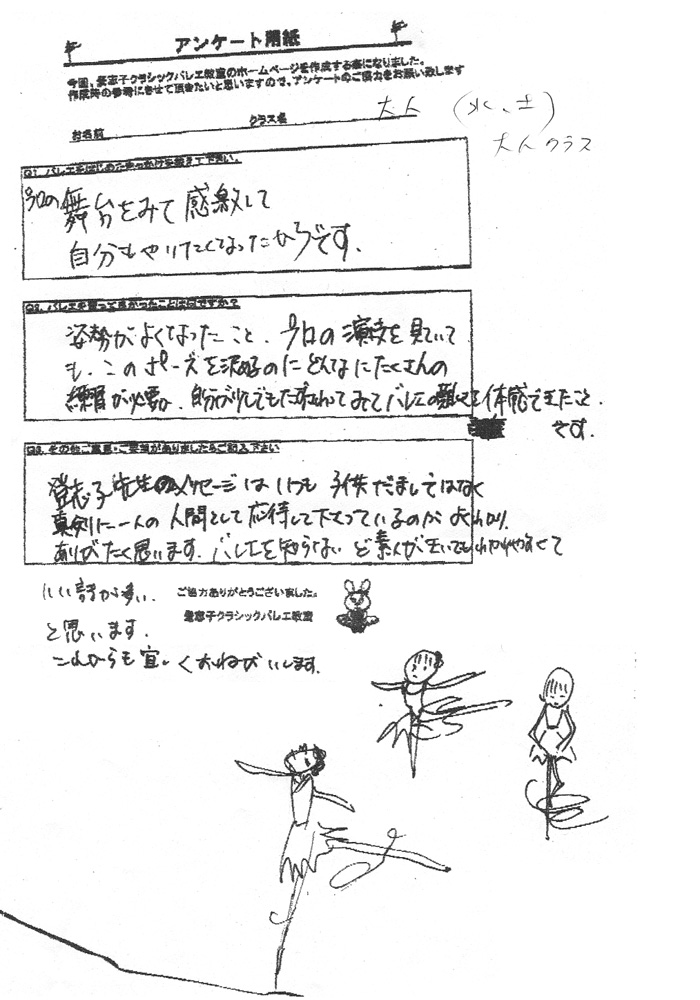 アンケート用紙
今回、愛志子クラシックバレエ教室のホームページを作成する事になりました。
作成時の参考にさせて頂きたいと思いますので、アンケートのご協力をお願い致します
お名前 クラス名 大人 (水、土)
大人クラス
Q1. バレエをはじめたきっかけを教えて下さい。
プロの舞台をみて感激して
自分もやりたくなったからです.
Q2. バレエを習って良かったことは何ですか?
姿勢がよくなったこと. プロの演技を見ていて
も. このポーズを決めるのにどんなにたくさんの
練習が必要か. 自分が少しでもたずさわってみてバレエの難しさを体感できたこと.
です.
Q3. その他ご意見・ご要望がありましたらご記入下さい
登志子先生のメッセージはいつも子供だましではなく
真剣に一人の人間として応待して下さっているのがよくわかり.
ありがたく思います. バレエを知らないど素人が
いい話が多い.
と思います.
これからも宜しくおねがいします.
ご協力ありがとうございました。
愛志子クラシックバレエ教室